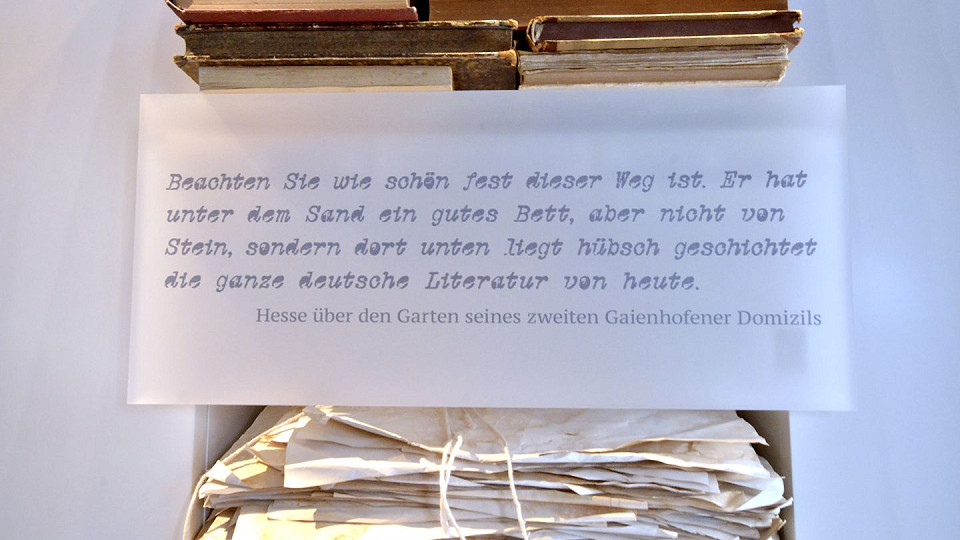 Beachten Sie wie schön fest dieser Weg ist. Er hat
unter dem Sand ein gutes Bett, aber nicht von
Stein, sondern dort unten liegt hübsch geschichtet
die ganze deutsche Literatur von heute.
Hesse über den Garten seines zweiten Gaienhofener Domizils